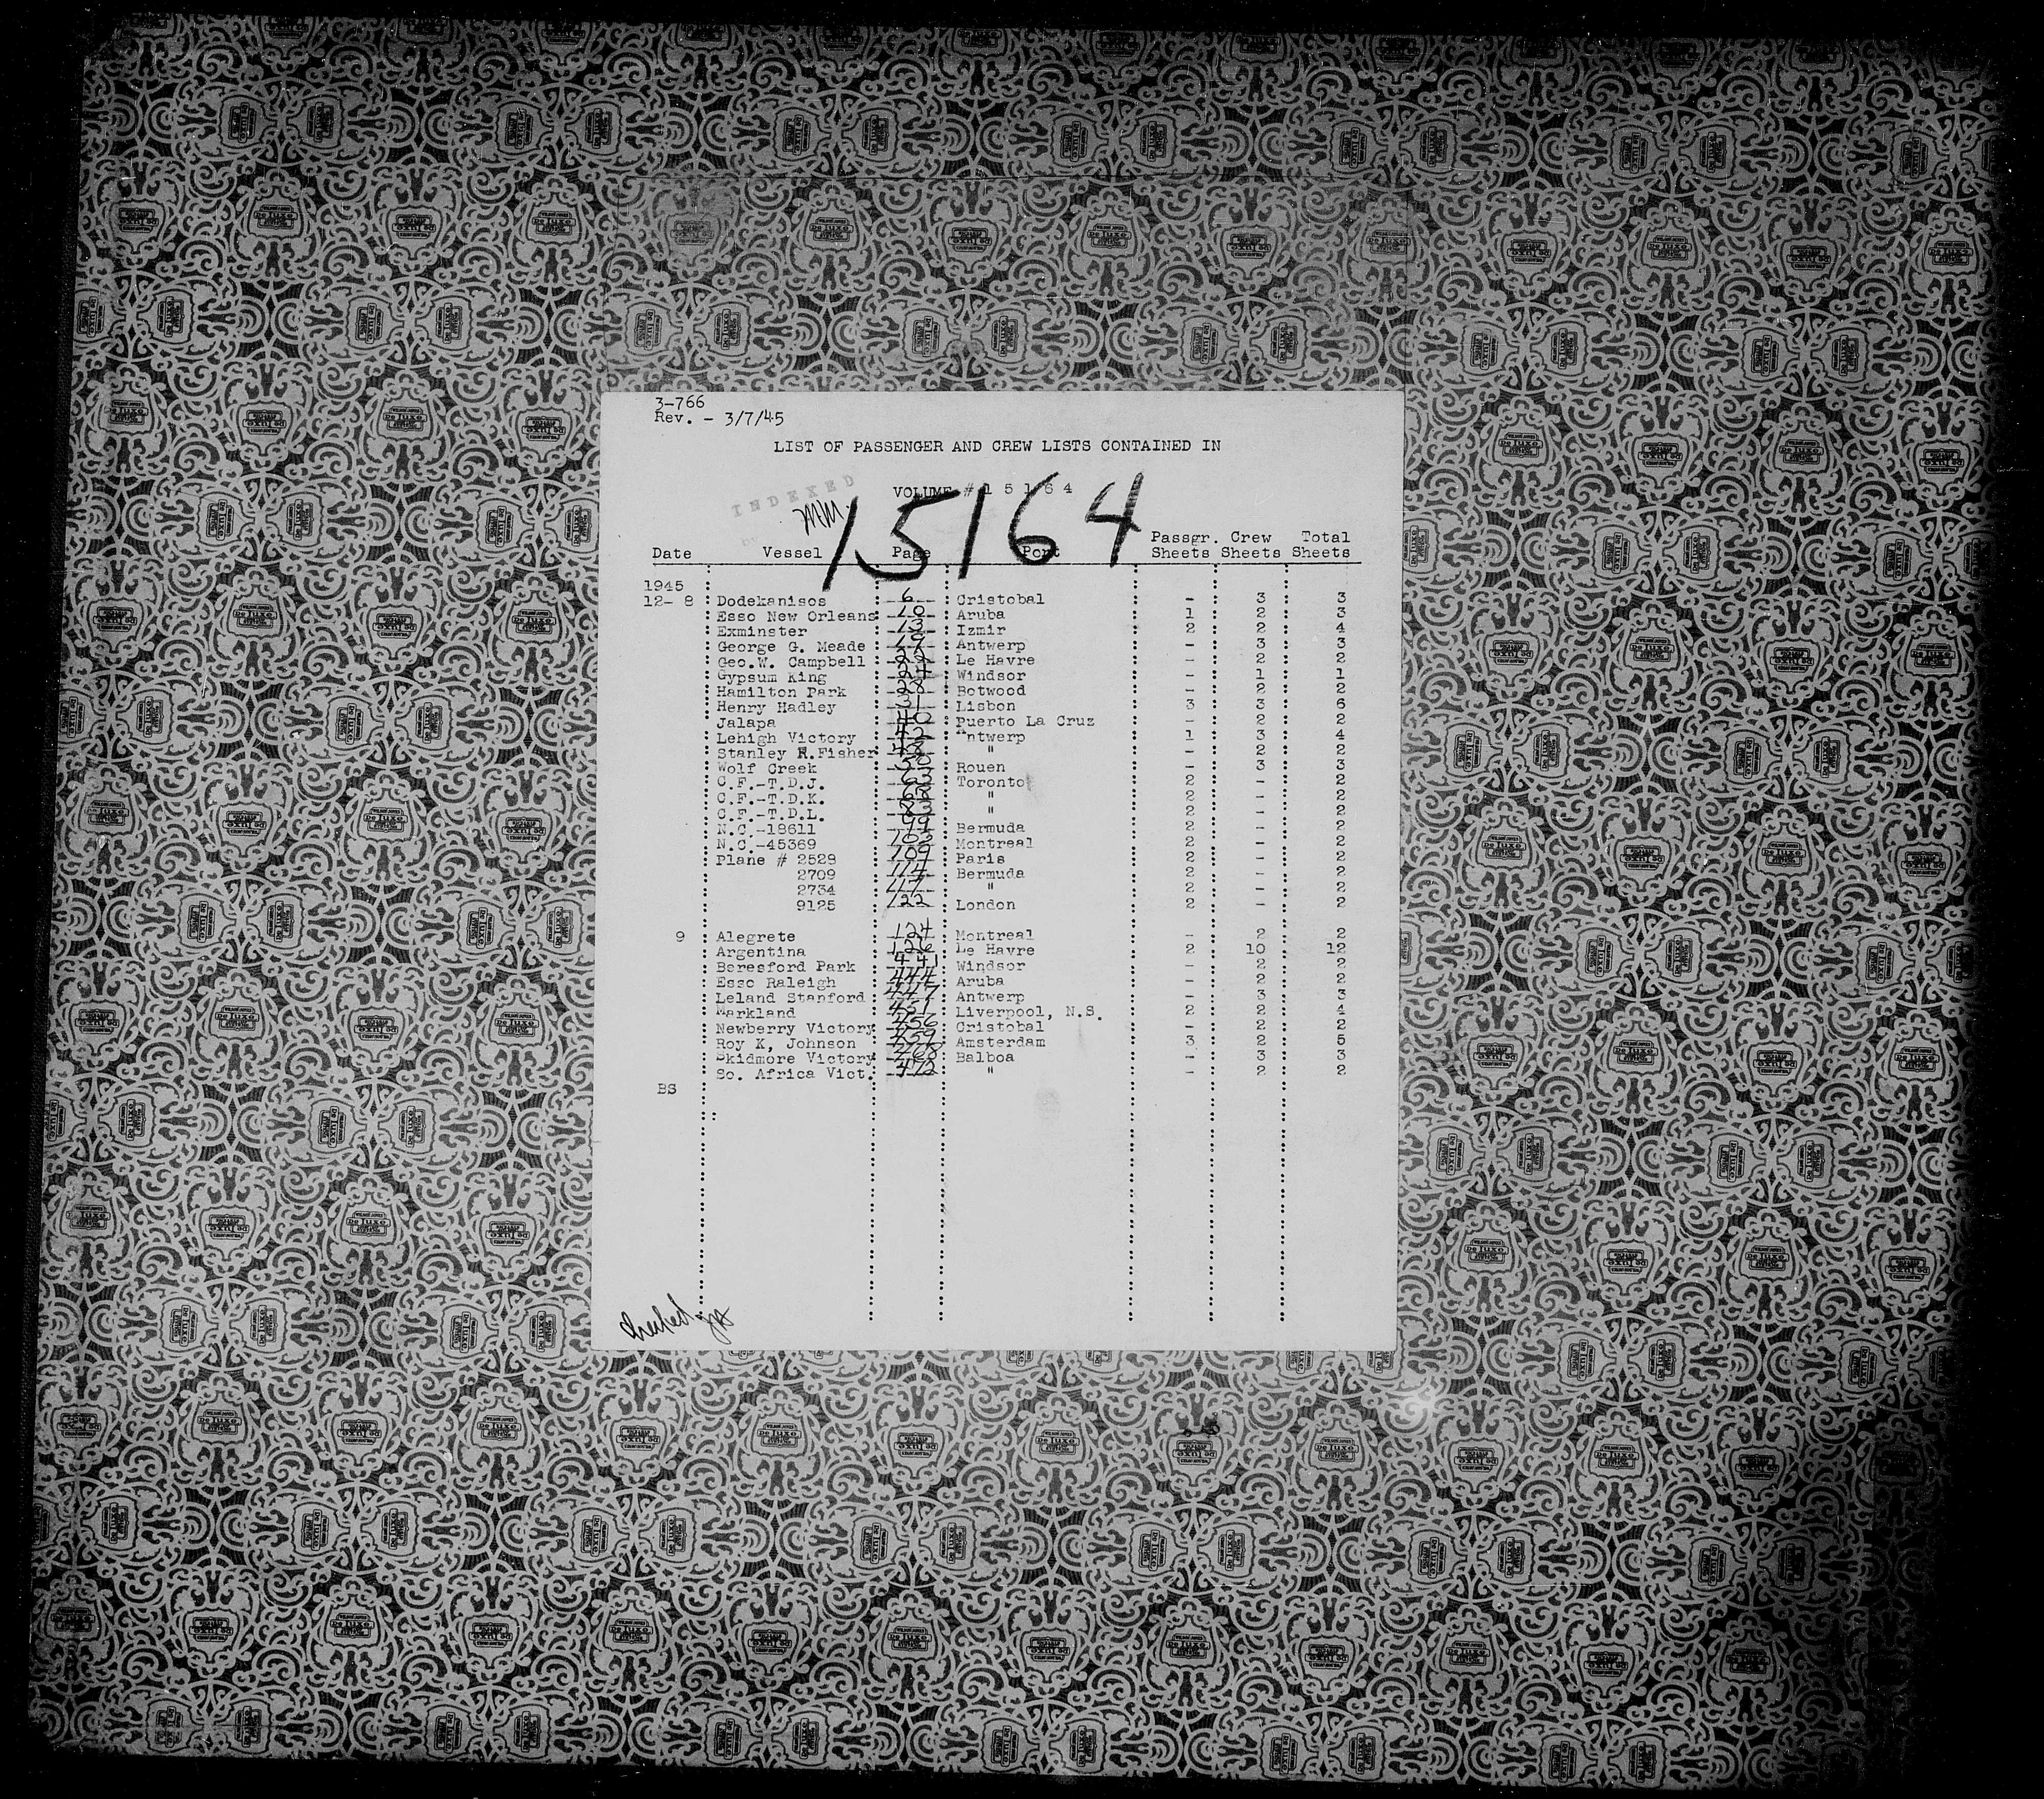 3-766
Rev. - 3/7/45
LIST OF PASSENGER AND CREW LISTS CONTAINED IN
INDEXED
VOLUME # 1 5 1 6 4
MM
15164
Date Vessel Page Port Passgr. Sheets Crew Sheets Total Sheets
1945
12- 8 Dodekanisos 6 Cristobal - 3 3
Esso New Orleans 10 Aruba 1 2 3
Exminster 13 Izmir 2 2 4
George G. Meade Antwerp - 3 3
Geo.W. Campbell 22 Le Havre - 2 2
Gypsum King 24 Windsor - 1 1
Hamilton Park 28 Botwood - 2 2
Henry Hadley 31 Lisbon 3 3 6
Jalapa 40 Puerto La Cruz - 2 2
Lehigh Victory 42 Antwerp 1 3 4
Stanley R.Fisher 48 " - 2 2
Wolf Creek 50 Rouen - 3 3
C.F.-T.D.J. 63 Toronto 2 - 2
C.F.-T.D.K. 68 " 2 - 2
C.F.-T.D.L. 83 " 2 - 2
N.C.-18611 Bermuda 2 - 2
N.C.-45369 103 Montreal 2 - 2
Plane # 2529 109 Paris 2 - 2
2709 114 Bermuda 2 - 2
2734 117 " 2 - 2
9125 122 London 2 - 2
9 Alegrete 124 Montreal - 2 2
Argentina 126 Le Havre 2 10 12
Beresford Park 441 Windsor - 2 2
Esso Raleigh 444 Aruba - 2 2
Leland Stanford 447 Antwerp - 3 3
Markland 451 Liverpool, N.S. 2 2 4
Newberry Victory 456 Cristobal - 2 2
Roy K, Johnson 459 Amsterdam 3 2 5
Skidmore Victory 468 Balboa - 3 3
So. Africa Vict. 472 " - 2 2
BS
checked